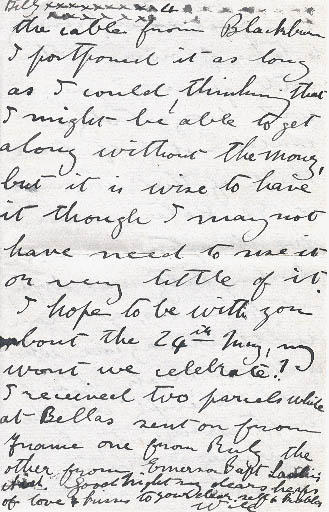 Billy xxxxxxxx 4 xxxx
the cable from Blackburn
I postponed it as long
as I could, thinking that
I might be able to get
along without the money,
but it is wise to have
it though I may not
have need to use it
or very little of it.
I hope to be with you
about the 24th May, my
wont we celebrate!
I received two parcels while
at Bellas sent on from
one from Ruby the
other from Emerson
Good night my dears heaps
of love & kisses to your dear self &
Will